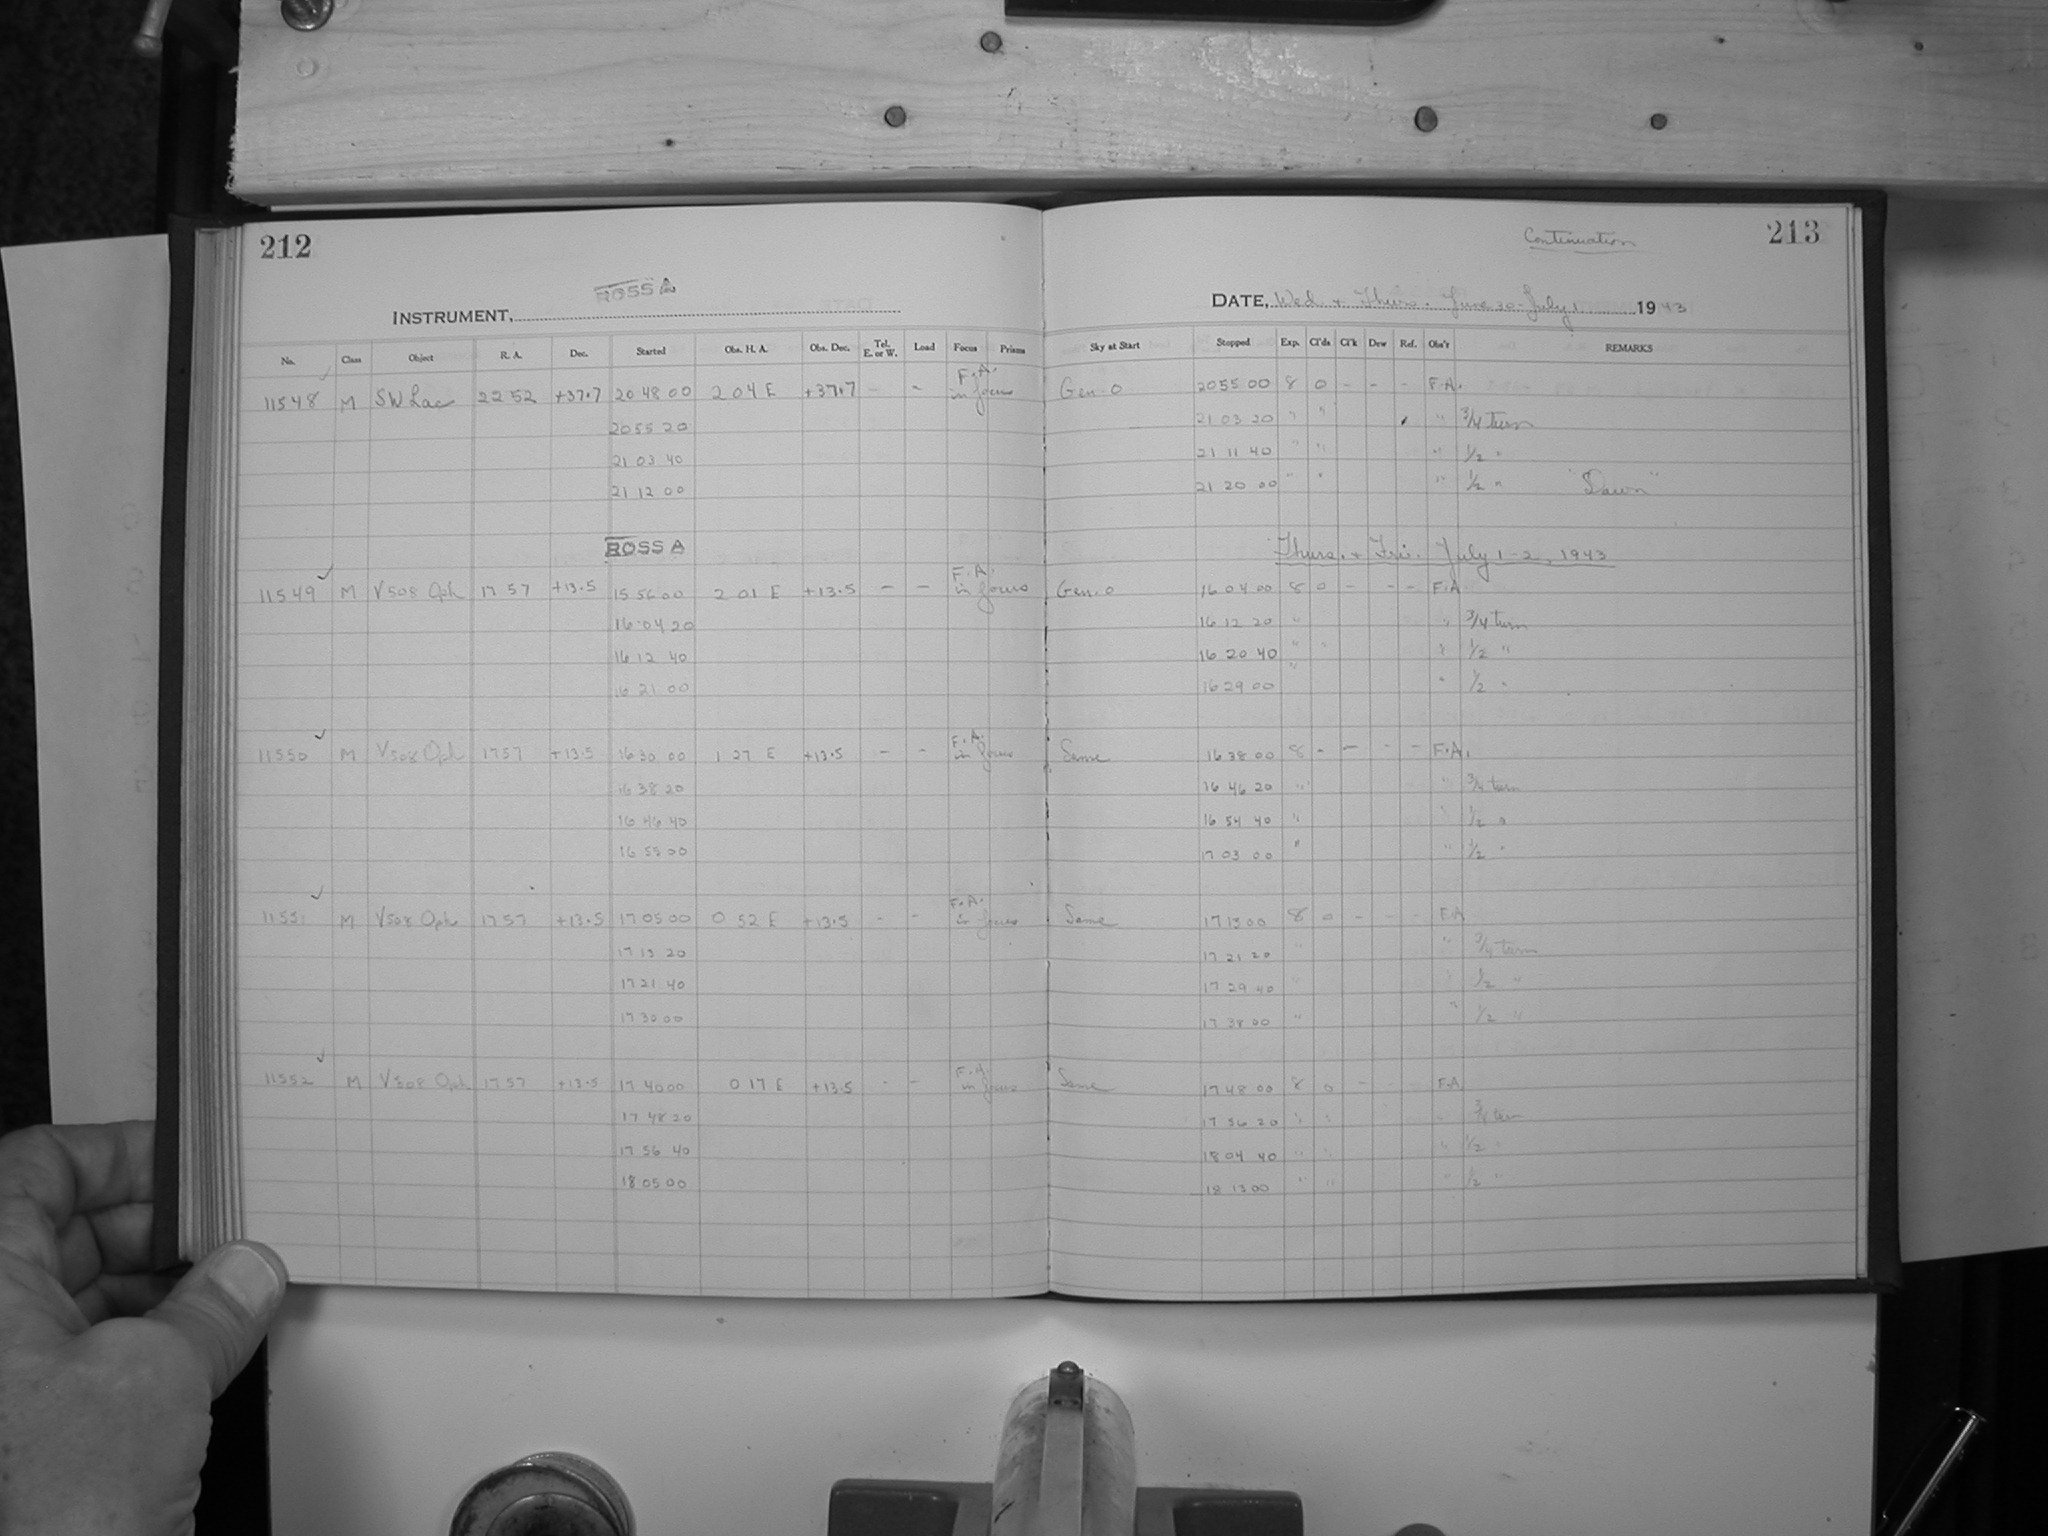 212
ROSS A
INSTRUMENT,
No. Class Object R. A. Dec. Started Obs. H. A. Obs. Dec. Tel. E. or W. Load Focus Prisms
11548 M SW Lac 22 52 +37.7 20 48 00 2 04 E +37.7 - - F.A. in focus
20 55 20
21 03 40
21 12 00
ROSS A
11549 M V508 Oph 17 57 +13.5 15 56 00 2 01 E +13.5 - - F.A. in focus
16 04 20
16 12 40
16 21 00
11550 M V508 Oph 17 57 +13.5 16 30 00 1 27 E +13.5 - - F.A. in focus
16 38 20
16 46 40
16 55 00
11551 M V508 Oph 17 57 +13.5 17 05 00 0 52 E +13.5 - - F.A. in focus
17 13 20
17 21 40
17 30 00
11552 M V508 Oph 17 57 +13.5 17 40 00 0 17 E +13.5 - - F.A. in focus
17 48 20
17 56 40
18 05 00
Continuation
213
DATE, Wed + Thurs. June 30 - July 1 1943
Sky at Start Stopped Exp. Cl'ds Cl'k Dew Ref. Obs'r REMARKS
Gen. 0 20 55 00 8 0 - - - F.A.
21 03 20 " " " 3/4 turn
21 11 40 " " " 1/2 "
21 20 00 " " " 1/2 " "Dawn"
Thurs. + Fri. July 1-2, 1943
Gen. 0 16 04 00 8 0 - - - F.A.
16 12 20 " " 3/4 turn
16 20 40 " " " 1/2 "
16 29 00 " " 1/2 "
Same 16 38 00 8 - - - - F.A.
16 46 20 " " 3/4 turn
16 54 40 " " 1/2 "
17 03 00 " " 1/2 "
Same 17 13 00 8 0 - - - F.A.
17 21 20 " " 3/4 turn
17 29 40 " " 1/2 "
17 38 00 " " 1/2 "
Same 17 48 00 8 0 - - - F.A.
17 56 20 " " " 3/4 turn
18 04 40 " " " 1/2 "
18 13 00 " " " 1/2 "